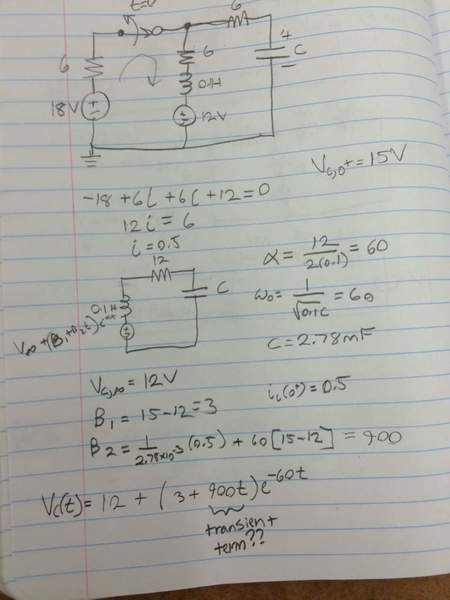 t=0
6
6
6
4
C
0.1H
18V
12V
Vc,0+ = 15V
-18 + 6i + 6i + 12 = 0
12i = 6
i = 0.5
α = 12/2(0.1) = 60
12
ω0 = 1/√0.1C = 60
0.1H
C
V∞ + (B1 + B2t)e-αt
C = 2.78mF
Vc,∞ = 12V
ic(0+) = 0.5
B1 = 15 - 12 = 3
B2 = 1/2.78x10-3 (0.5) + 60[15-12] = 900
Vc(t) = 12 + (3 + 900t)e-60t
transient
term??